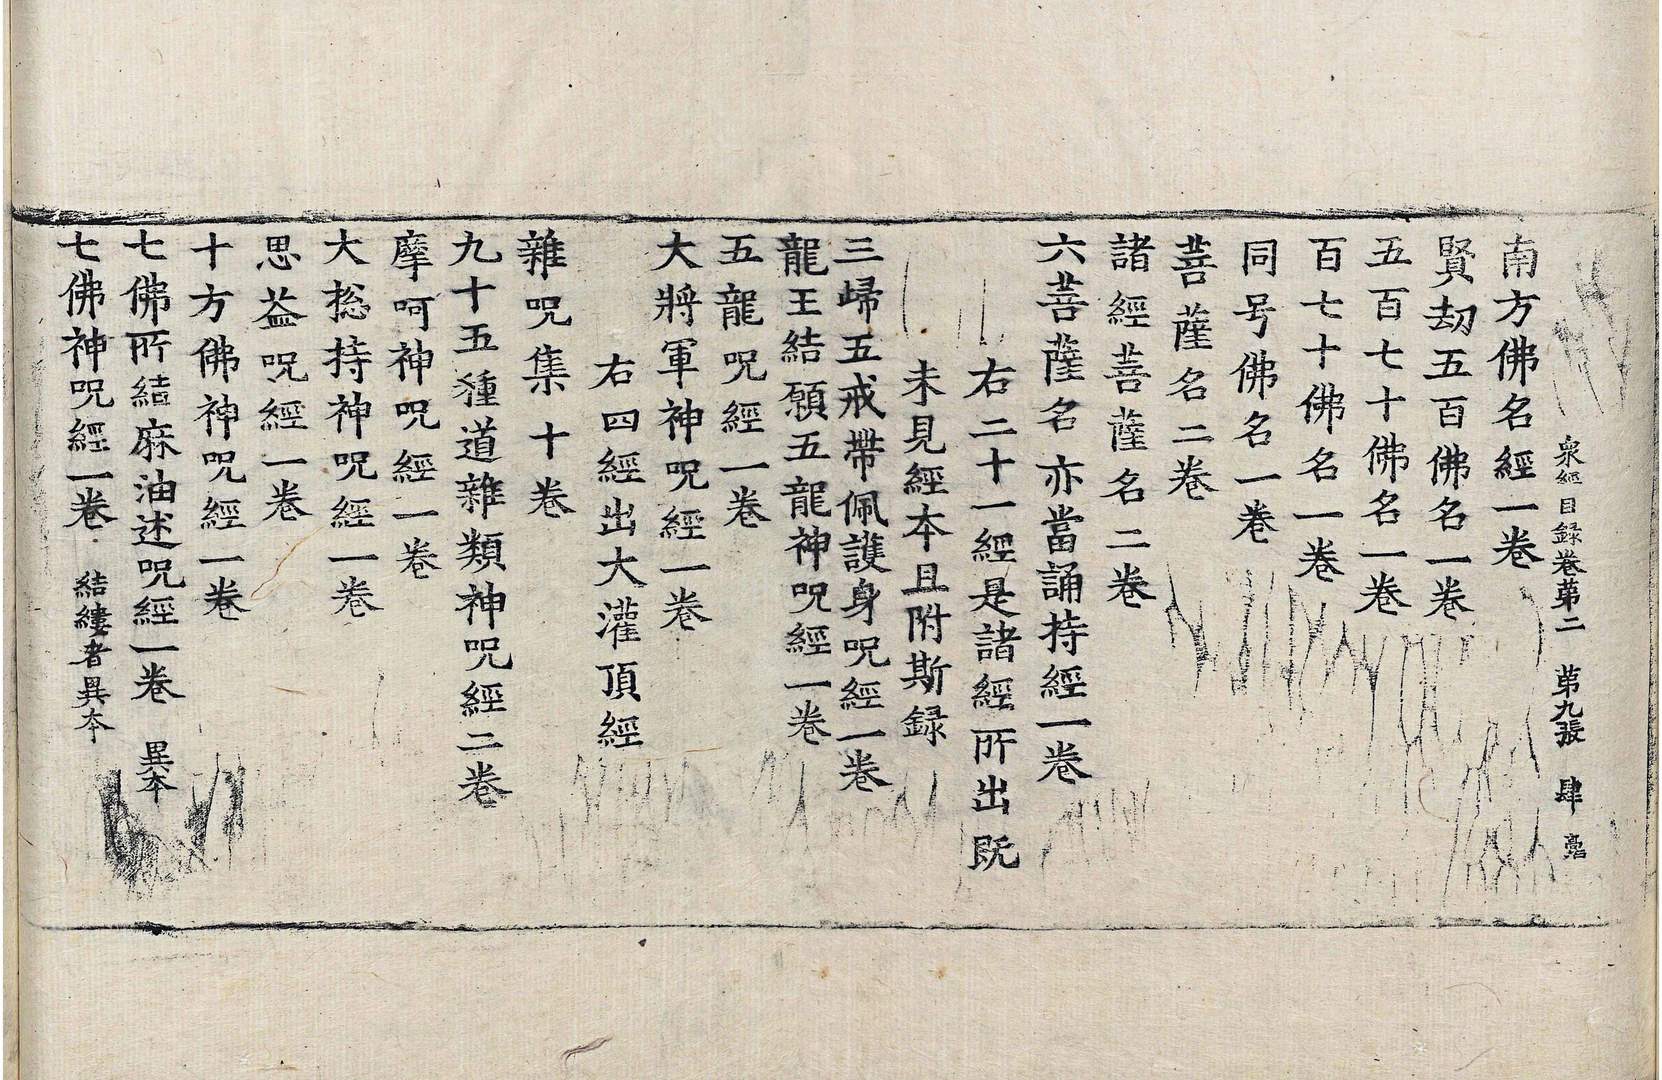 衆經目録卷第二　第九張　肆
南方佛名經一卷
賢劫五百佛名一卷
五百七十佛名一卷
百七十佛名一卷
同号佛名一卷
菩薩名二卷
諸經菩薩名二卷
六菩薩名亦當誦持經一卷
右二十一經是諸經所出既
未見經本且附斯録
三歸五戒帶佩護身呪經一卷
龍王結願五龍神呪經一卷
五龍呪經一卷
大將軍神呪經一卷
右四經出大灌頂經
雜呪集十卷
九十五種道雜類神呪經二卷
摩呵神呪經一卷
大捴持神呪經一卷
思益呪經一卷
十方佛神呪經一卷
七佛所結麻油述呪經一卷　異本
七佛神呪經一卷　結縷者異本